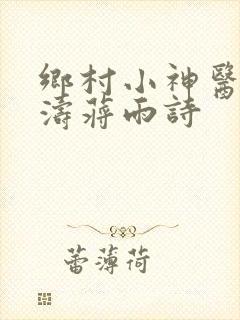 鄉村小神醫
濤蔣雨詩
蕾薄荷